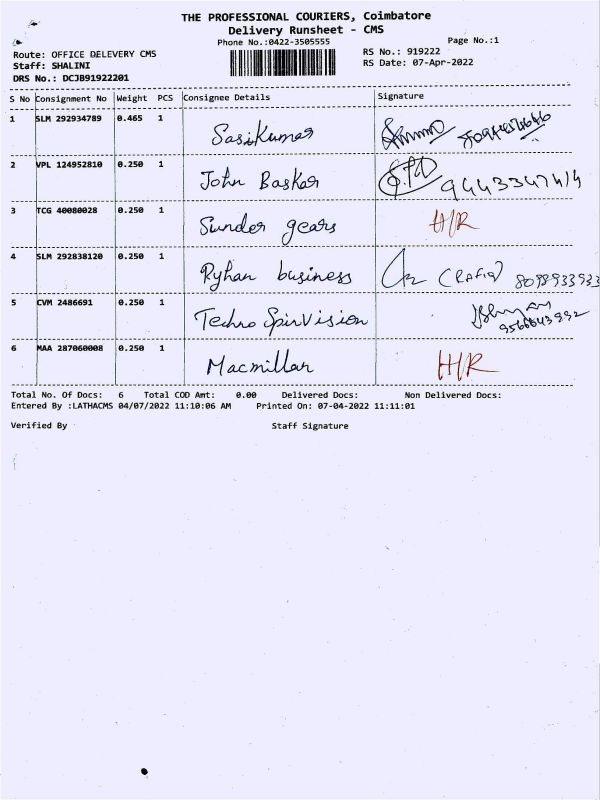 THE PROFESSIONAL COURIERS, Coimbatore
Delivery Runsheet - CMS
Phone No.:0422-3505555
Page No.:1
Route: OFFICE DELEVERY CMS
Staff: SHALINI
DRS No.: DCJB91922201
RS No.: 919222
RS Date: 07-Apr-2022
S No Consignment No Weight PCS Consignee Details Signature
1 SLM 292934789 0.465 1 Sasikumar
2 VPL 124952810 0.250 1 John Baskar 9443347414
3 TCG 40080028 0.250 1 Sunder gears H/R
4 SLM 292838120 0.250 1 Ryhan business (Rafiq) 8098933933
5 CVM 2486691 0.250 1 Techno SpinVision
6 MAA 287060008 0.250 1 Macmillan H/R
Total No. Of Docs: 6 Total COD Amt: 0.00 Delivered Docs: Non Delivered Docs:
Entered By :LATHACMS 04/07/2022 11:10:06 AM Printed On: 07-04-2022 11:11:01
Verified By Staff Signature